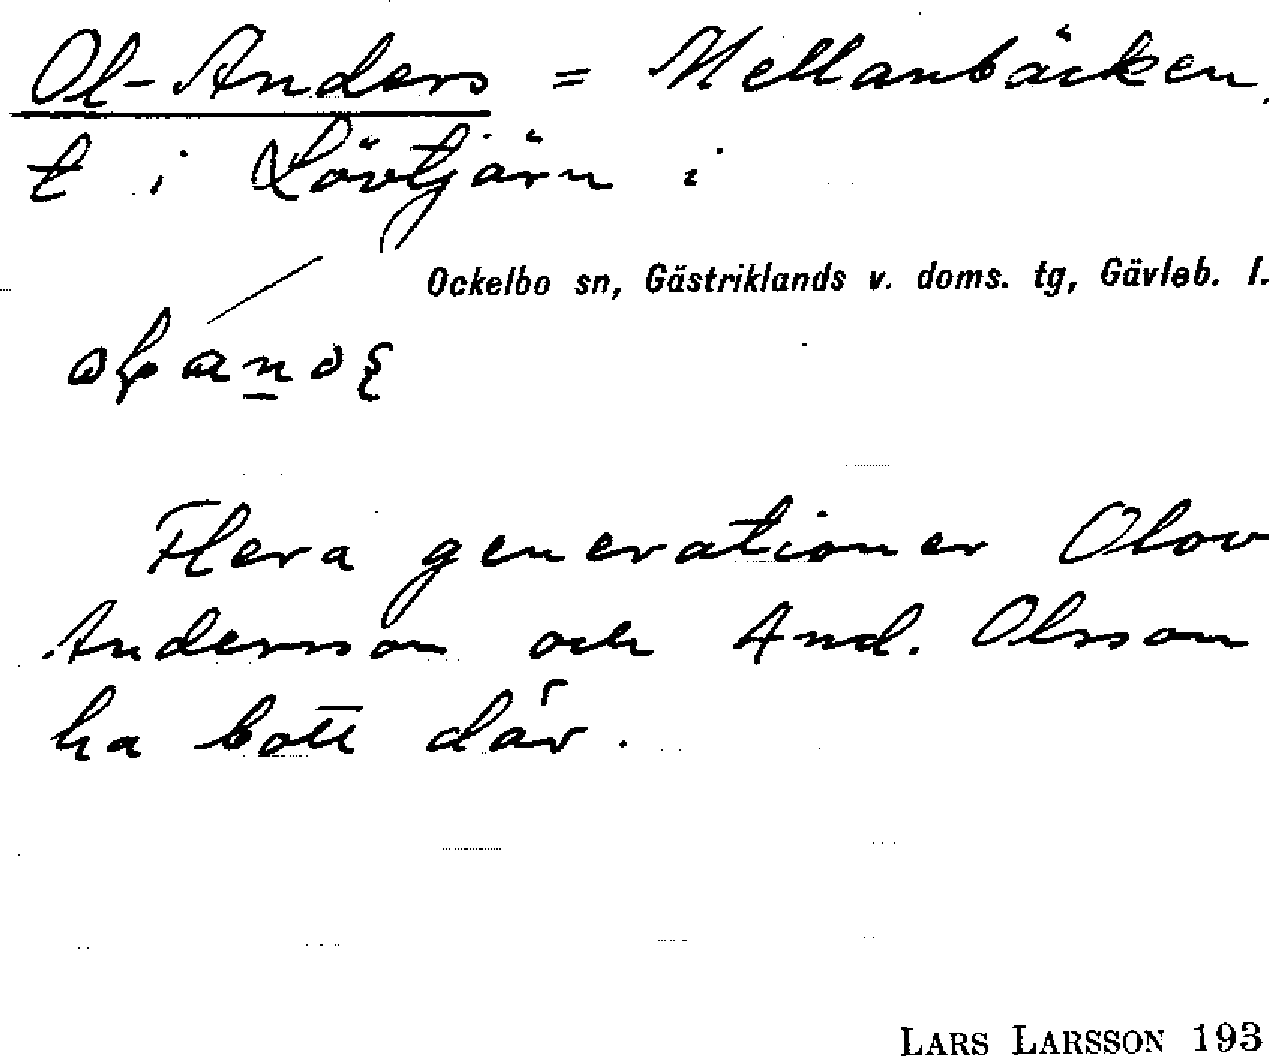 Ol-Anders = Mellanbäcken,
t i Lövtjärn i
Ockelbo sn, Gästriklands v. doms. tg, Gävleb. l.
Flera generationer Olov
Andersson och And. Olsson
ha bott där.
LARS LARSSON 193